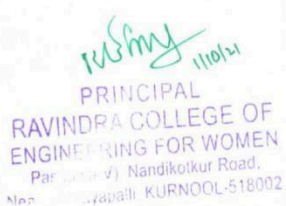 1/10/21
PRINCIPAL
RAVINDRA COLLEGE OF
ENGINEERING FOR WOMEN
Nandikotkur Road,
KURNOOL-518002